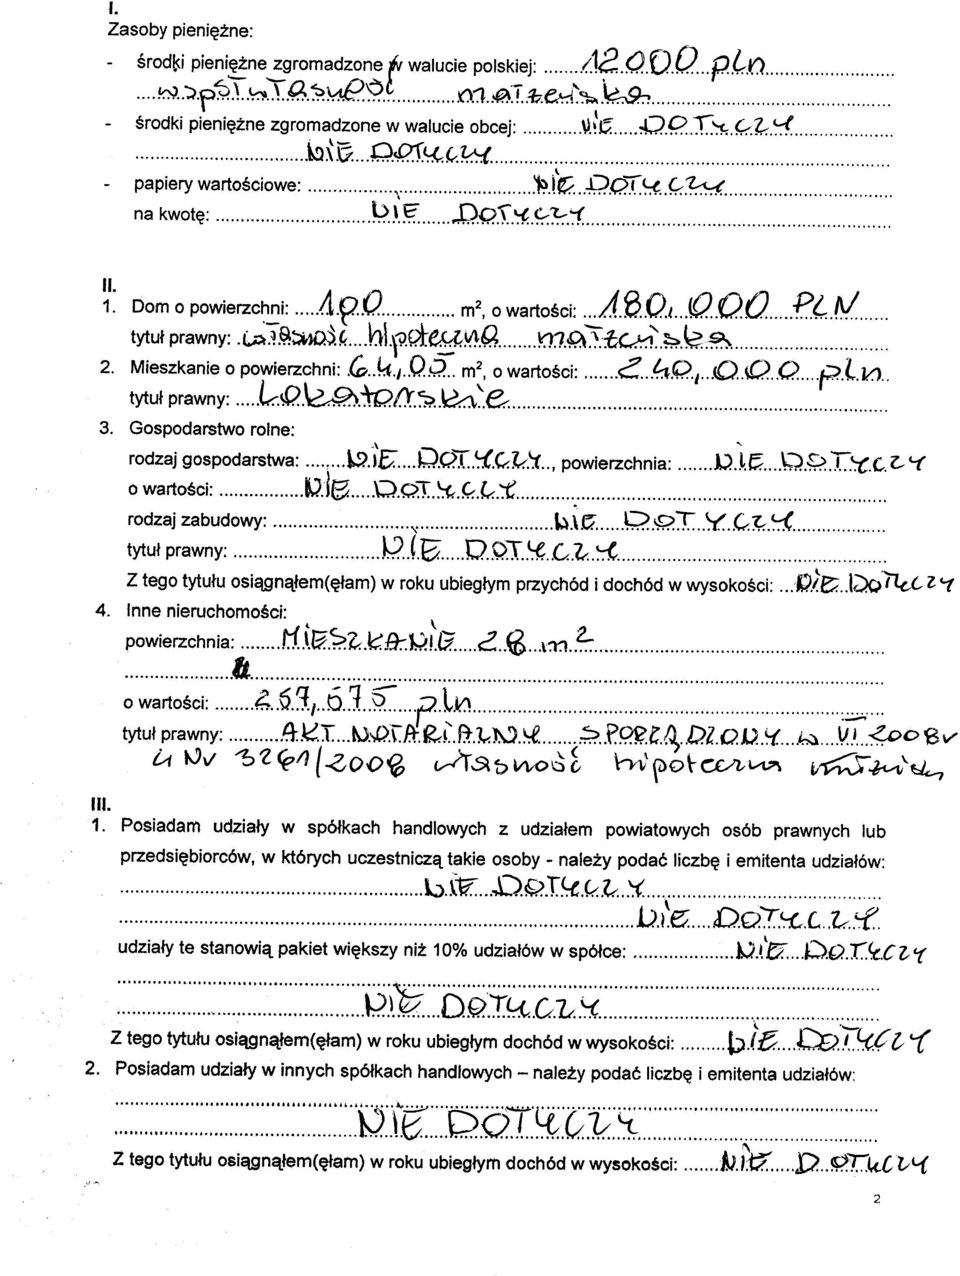 I.
Zasoby pieniężne:
- środki pieniężne zgromadzone w walucie polskiej: 12000 pln
współwłasność małżeńska
- środki pieniężne zgromadzone w walucie obcej: NIE DOTYCZY
NIE DOTYCZY
- papiery wartościowe: NIE DOTYCZY
na kwotę: NIE DOTYCZY
II.
1. Dom o powierzchni: 100 m², o wartości: 180,000 PLN
tytuł prawny: własność hipoteczna małżeńska
2. Mieszkanie o powierzchni: 64,05 m², o wartości: 240,000 pln
tytuł prawny: Lokatorskie
3. Gospodarstwo rolne:
rodzaj gospodarstwa: NIE DOTYCZY, powierzchnia: NIE DOTYCZY
o wartości: NIE DOTYCZY
rodzaj zabudowy: NIE DOTYCZY
tytuł prawny: NIE DOTYCZY
Z tego tytułu osiągnąłem(ęłam) w roku ubiegłym przychód i dochód w wysokości: NIE DOTYCZY
4. Inne nieruchomości:
powierzchnia: MIESZKANIE 28 m²
o wartości: 257,675 pln
tytuł prawny: AKT NOTARIALNY SPORZĄDZONY w VI 2008r
4 Nr 3261/2008 własność hipoteczna
III.
1. Posiadam udziały w spółkach handlowych z udziałem powiatowych osób prawnych lub
przedsiębiorców, w których uczestniczą takie osoby - należy podać liczbę i emitenta udziałów:
NIE DOTYCZY
NIE DOTYCZY
udziały te stanowią pakiet większy niż 10% udziałów w spółce: NIE DOTYCZY
NIE DOTYCZY
Z tego tytułu osiągnąłem(ęłam) w roku ubiegłym dochód w wysokości: NIE DOTYCZY
2. Posiadam udziały w innych spółkach handlowych – należy podać liczbę i emitenta udziałów:
NIE DOTYCZY
Z tego tytułu osiągnąłem(ęłam) w roku ubiegłym dochód w wysokości: NIE DOTYCZY
2